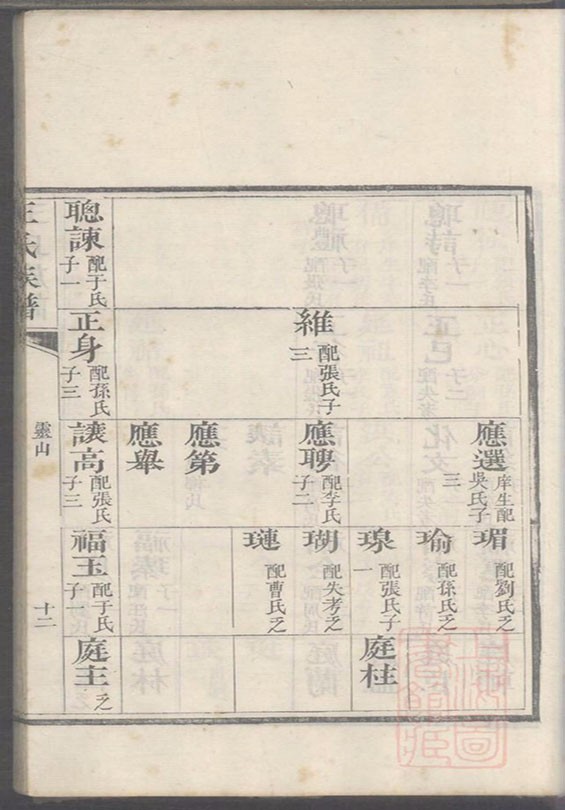 維 配張氏子三
應選 庠生配吳氏子三
應聘 配李氏子二
應第
應舉
瑂 配劉氏乏
瑜 配孫氏乏
瑔 配張氏子一
瑚 配失考乏
璉 配曹氏乏
庭柱
聰諫 配于氏子一
正身 配孫氏子三
讓高 配張氏子三
福玉 配于氏子一
庭主 乏
王氏族譜
靈山
十二